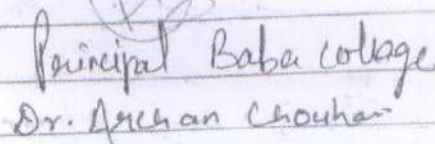 Principal Baba collage
Dr. Archan Chouhan